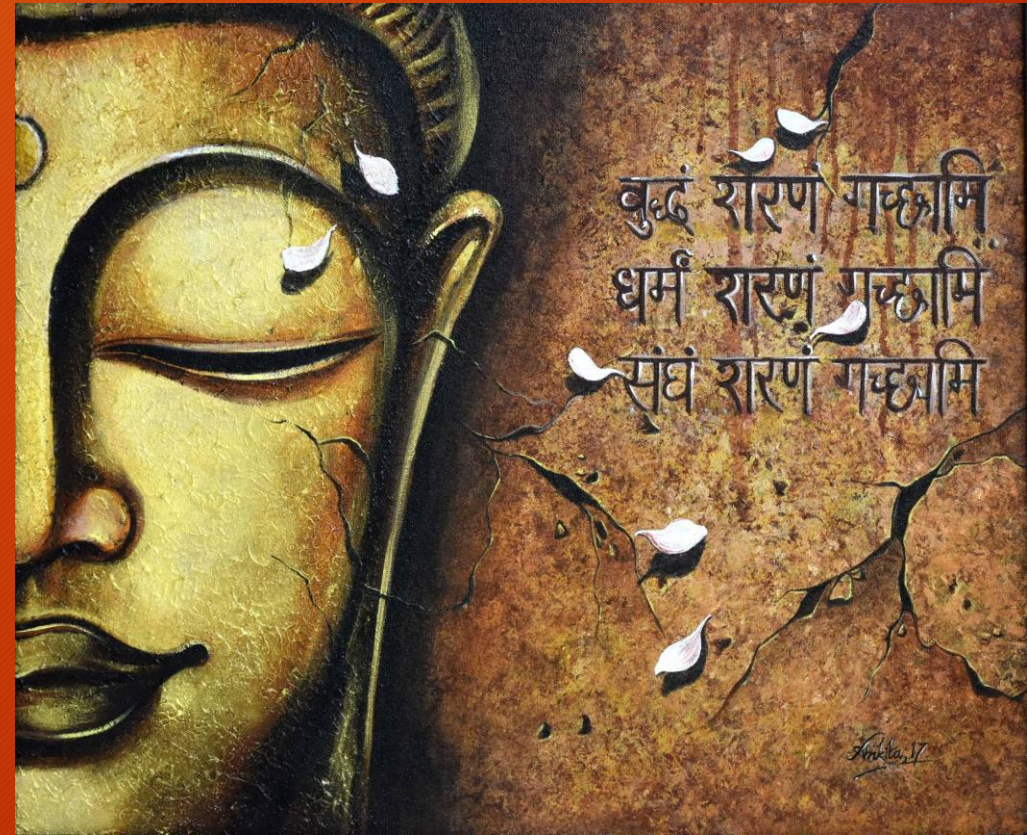 बुद्धं शरणं गच्छामि
धर्मं शरणं गच्छामि
संघं शरणं गच्छामि
Ankita, 17